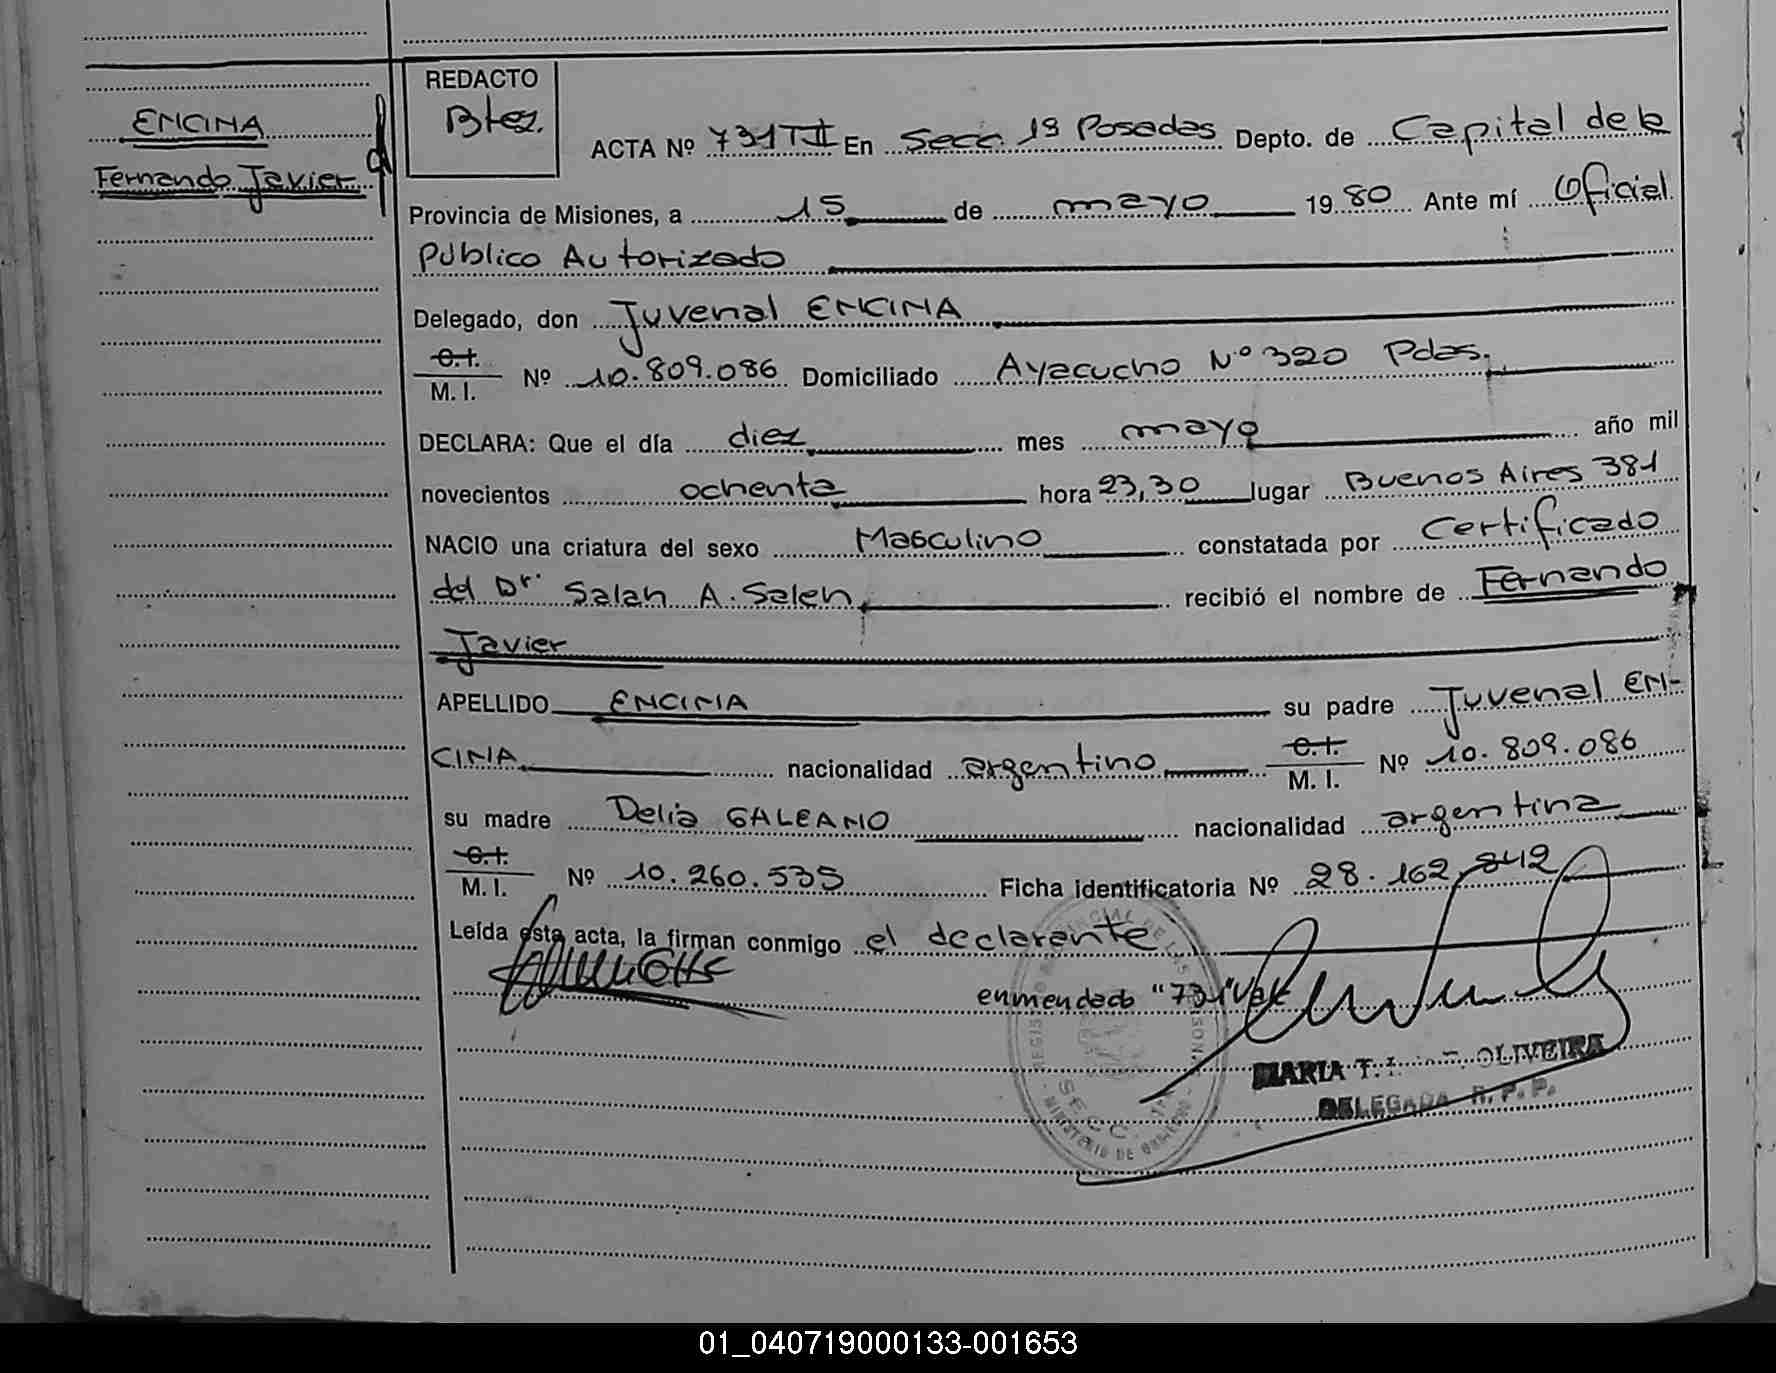 ENCINA
Fernando Javier
REDACTO
Btez.
ACTA Nº 731 T II En Secc. 1ª Posadas Depto. de Capital de la
Provincia de Misiones, a 15 de mayo 1980 Ante mí Oficial
Público Autorizado
Delegado, don Juvenal ENCINA
C.I.
M. I. Nº 10.809.086 Domiciliado Ayacucho Nº 320 Pdas.
DECLARA: Que el día diez mes mayo año mil
novecientos ochenta hora 23,30 lugar Buenos Aires 381
NACIO una criatura del sexo Masculino constatada por Certificado
del Dr. Salah A. Saleh recibió el nombre de Fernando
Javier
APELLIDO ENCINA su padre Juvenal EN-
CINA nacionalidad argentino C.I.
M. I. Nº 10.809.086
su madre Delia GALEANO nacionalidad argentina
C.I.
M. I. Nº 10.260.535 Ficha identificatoria Nº 28.162.842
Leída esta acta, la firman conmigo el declarante
enmendado "731" Vale
MARIA T. OLIVEIRA
DELEGADA R. P. P.
SECC. 1ª
MINISTERIO DE GOBIERNO
01_040719000133-001653